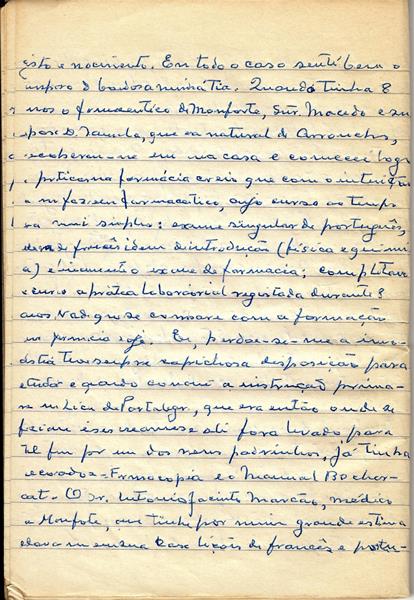 isto e nascimento. Em todo o caso senti bem o
amparo de bondosa minha tia. Quando tinha 8
anos o farmacêutico de Monforte, Snr. Macedo e sua
esposa D. , que era natural de Arronches,
receberam-me em sua casa e comecei logo
a praticar na farmácia creio que com a intenção
a me fazerem farmaceutico, cujo curso ao tempo
era mui simples: exame singular de português,
de francês idem de introdução (física e quími
ca) e finalmente exame de farmacia; completava
o curso a prática laboratorial registada durante 8
anos. Nada que se compare com a formação
na farmácia hoje. Eu, perdoe-se-me a imo-
destia tive sempre caprichosa disposição para
estudar e quando concluí a instrução primá-
ria no Liceu de Portalegre, que era então onde se
faziam esses exames e ali fora levado para
tal fim por um dos meus padrinhos, já tinha
decorado a Farmacopia e o Manual
O Dr. António Jacinto Marcão, médico
a Monforte, que tinha por mim grande estima
dava-me em sua casa lições de francês e portu-